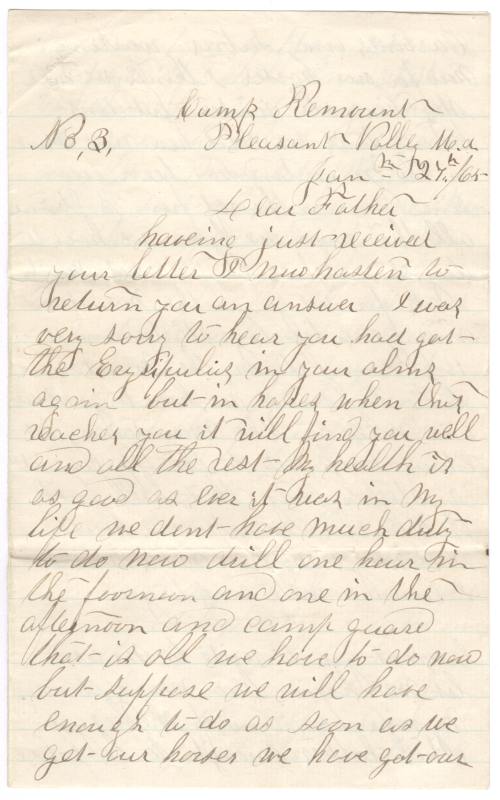 Camp Remount
No 3, Pleasant Valley M.d
Jan 27th/65
Dear Father
haveing just received
your letter I now hasten to
return you an answer I was
very sorry to hear you had got
the Erysipulis in your alms
again but in hopes when this
reaches you it will find you well
and all the rest My health is
as good as ever it was in My
life we dont have much duty
to do now drill one hour in
the foornoon and one in the
afternoon and camp guard
that is all we have to do now
but suppose we will have
enough to do as soon as we
get our horses we have got our